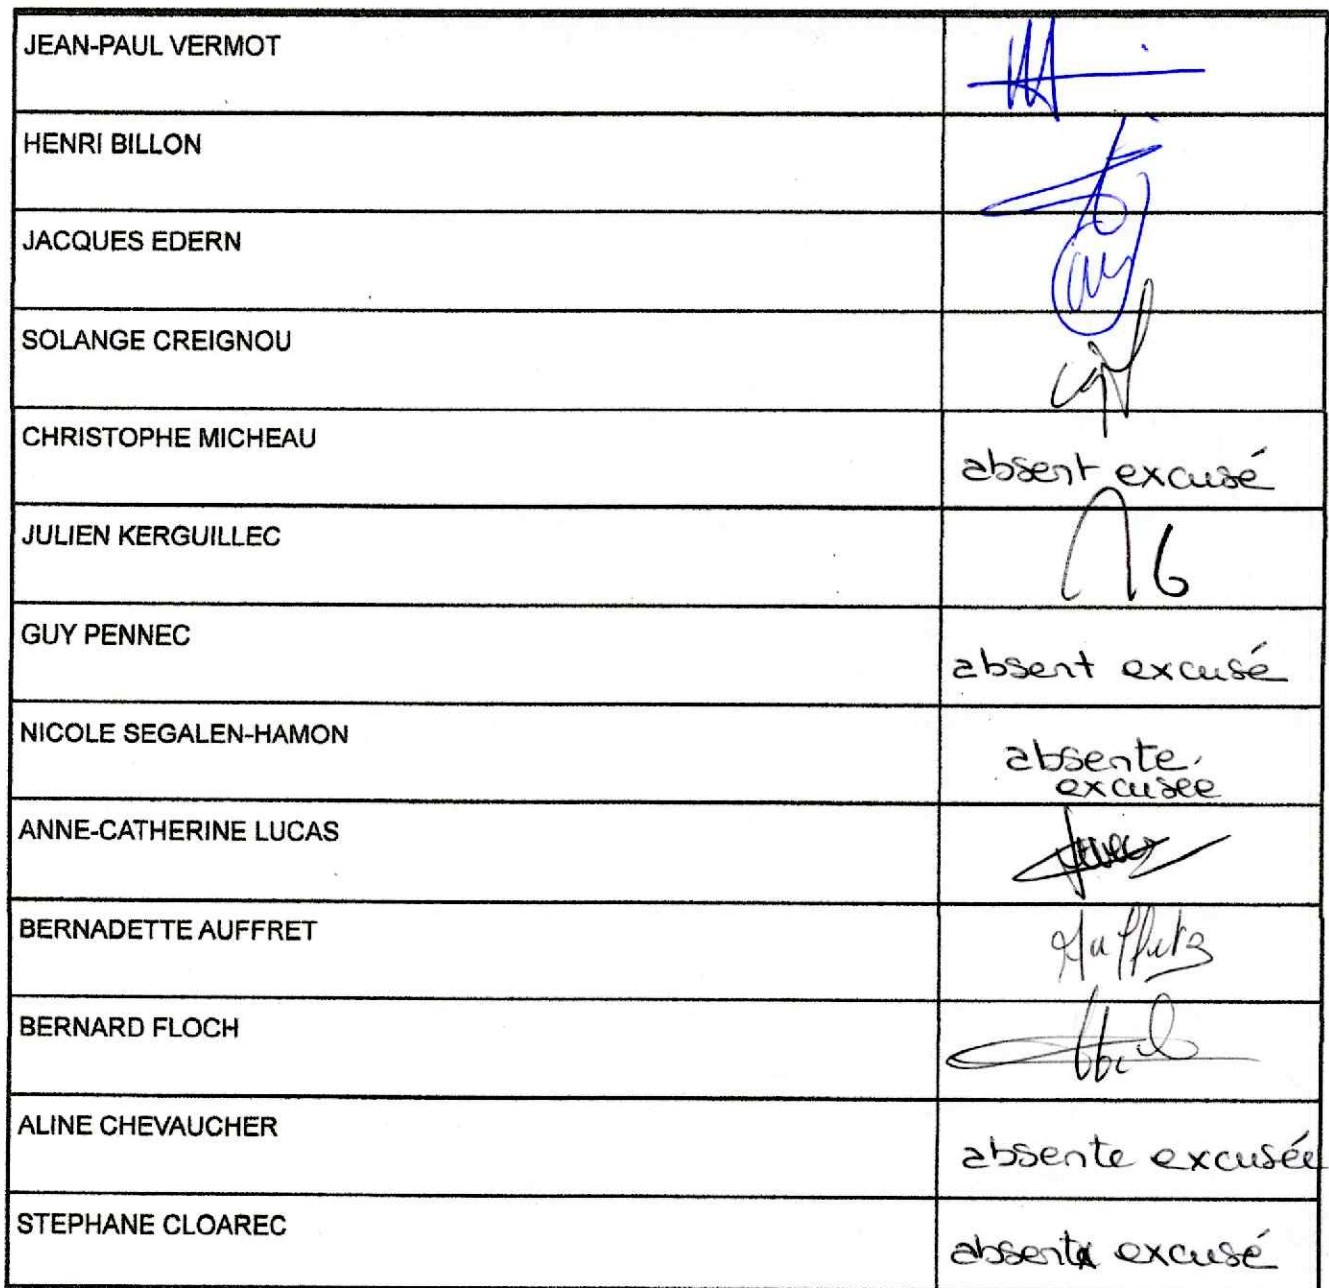 JEAN-PAUL VERMOT
HENRI BILLON
JACQUES EDERN
SOLANGE CREIGNOU
CHRISTOPHE MICHEAU
absent excusé
JULIEN KERGUILLEC
GUY PENNEC
absent excusé
NICOLE SEGALEN-HAMON
absente
excusée
ANNE-CATHERINE LUCAS
BERNADETTE AUFFRET
BERNARD FLOCH
ALINE CHEVAUCHER
absente excusée
STEPHANE CLOAREC
absent excusé